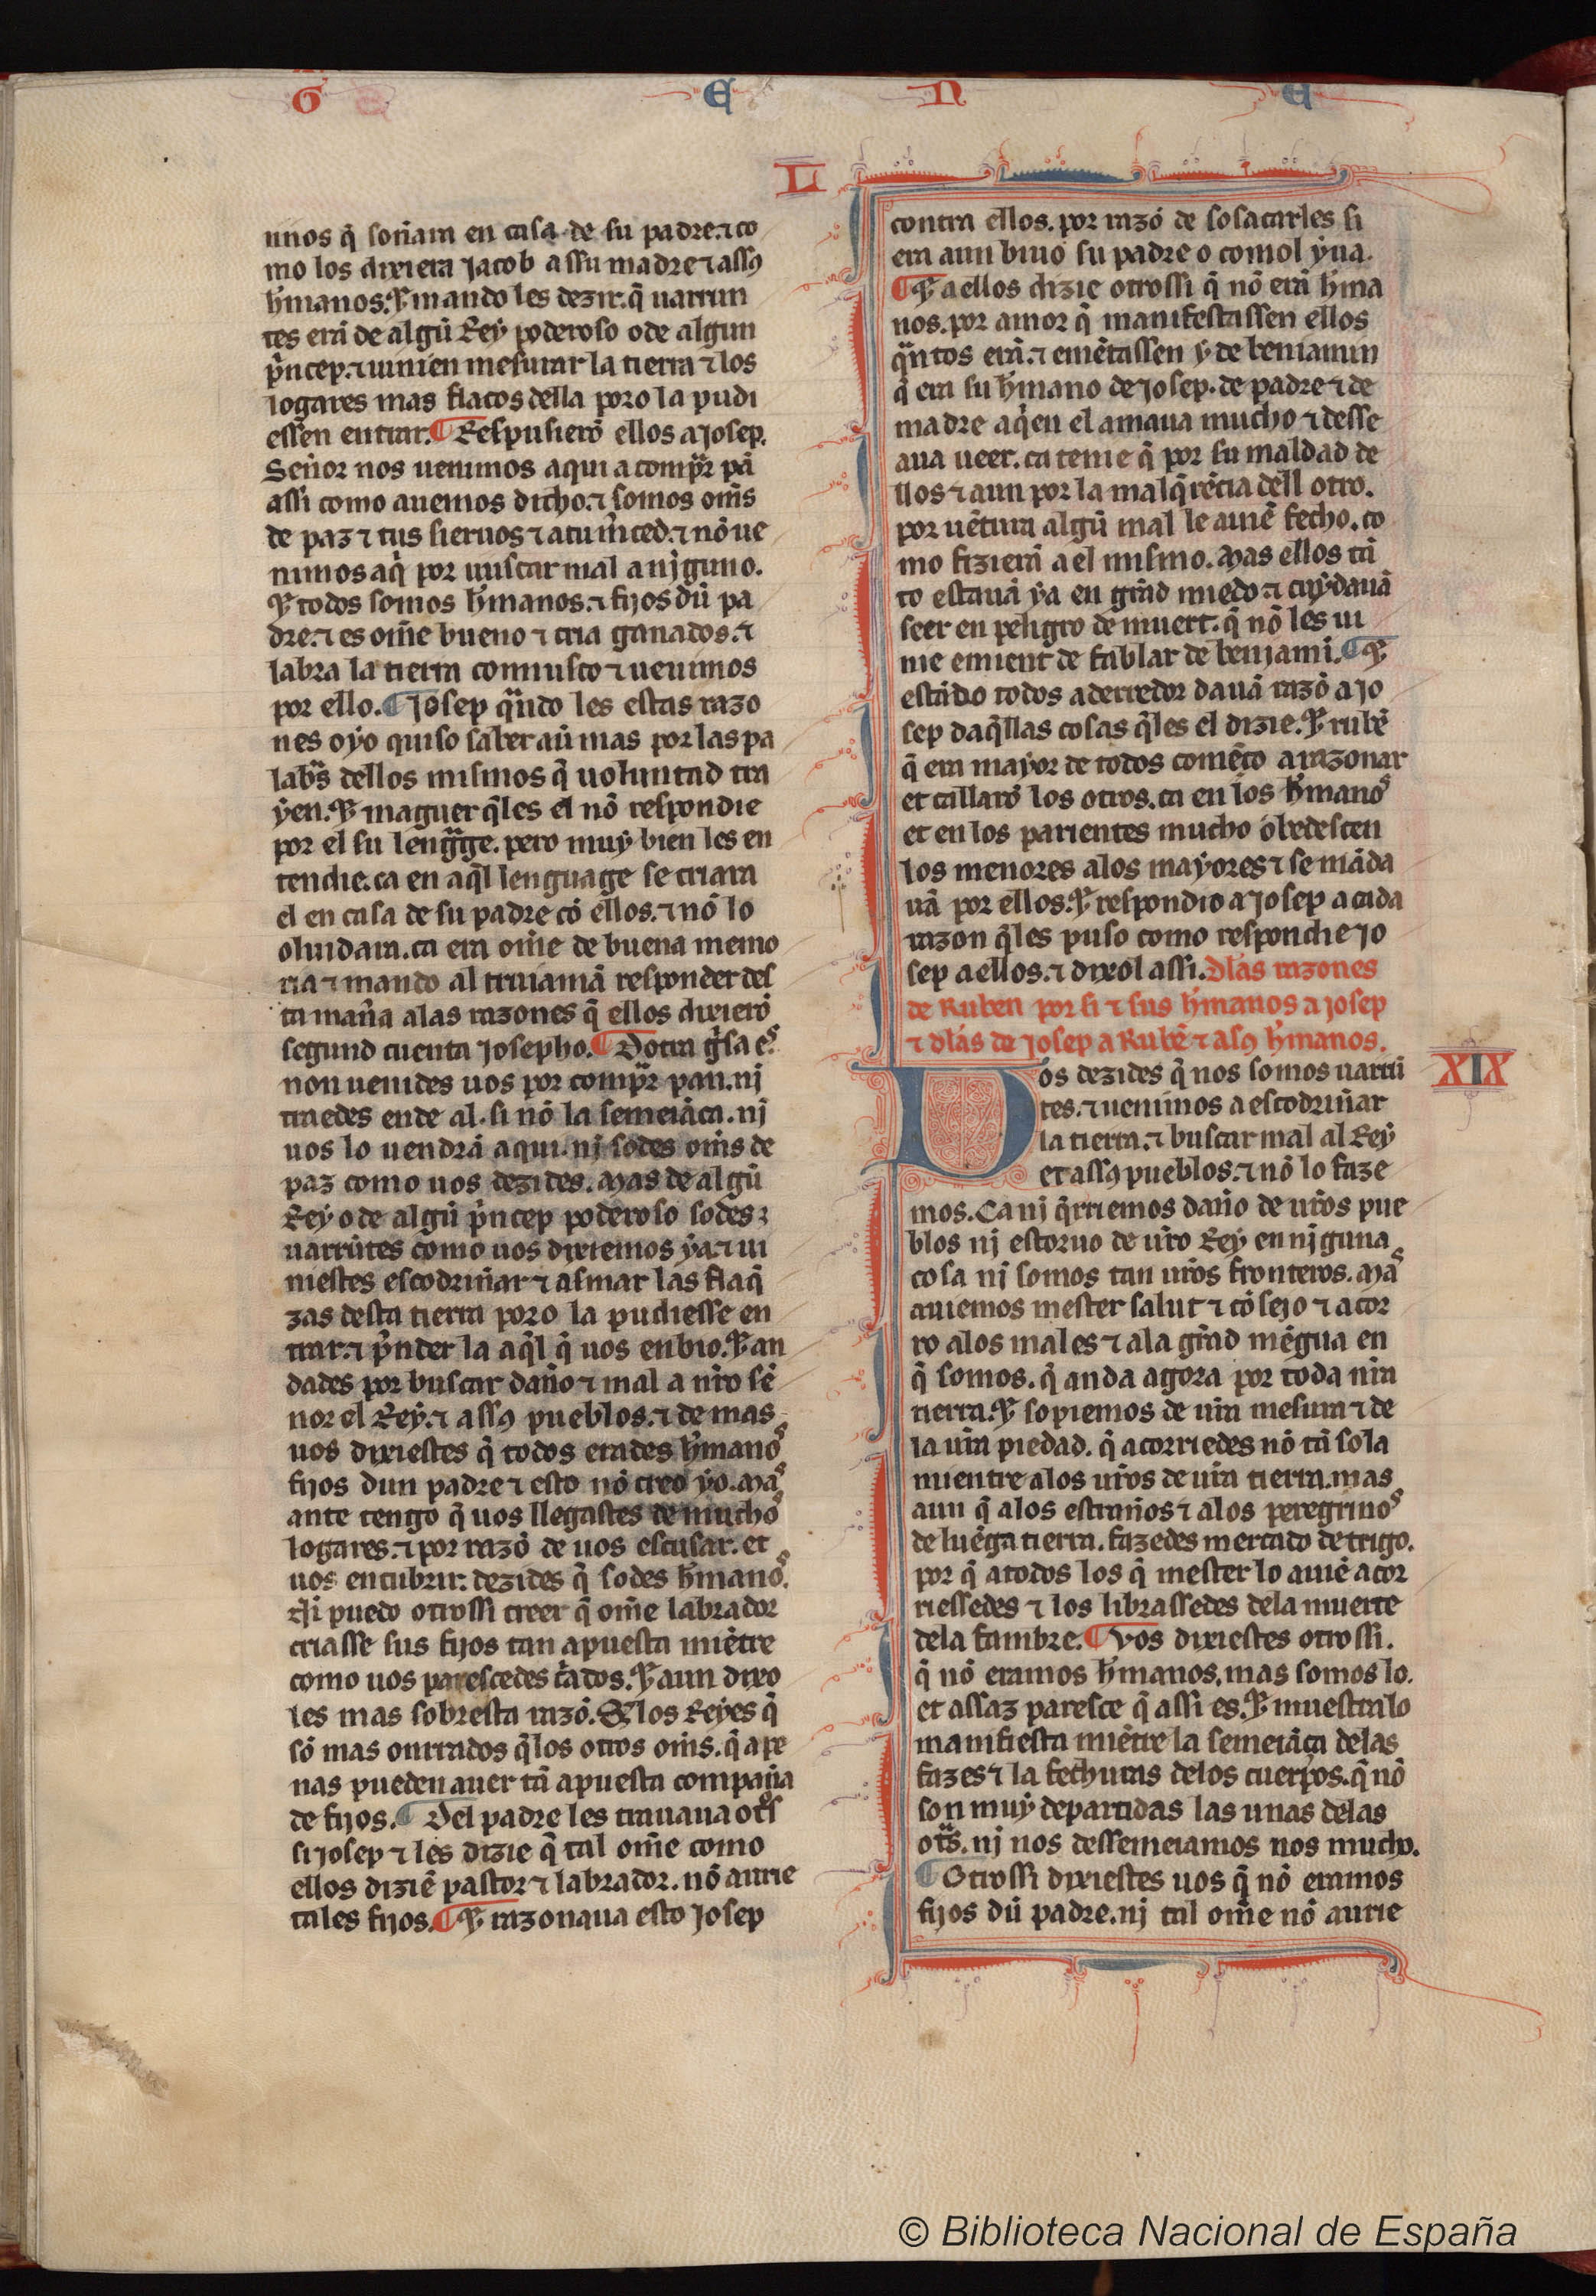 G E N E
L
unos q̃ soñara en casa de su padre.⁊ co
mo los dixiera Jacob assu madre ⁊ assꝯ
h̃manos. ⁊ mando les dezir. q̃ uarrun
tes erã de algũ Rey poderoso o de algun
p̃ncep.⁊ uinien mesurar la tierra ⁊ los
logares mas flacos della poro la pudi
essen entrar. ¶ Respusierõ ellos a josep.
Señor nos uenimos aqui a comp̃r pã
assi como auemos dicho.⁊ somos om̃s
de paz ⁊ tus sieruos ⁊ atu m̃ced.⁊ nõ ue
nimos aq̃ por buscar mal a nj̃guno.
⁊ todos somos h̃manos.⁊ fijos dũ pa
dre.⁊ es om̃e bueno ⁊ cria ganados.⁊
labra la tierra connusco ⁊ ueuimos
por ello. ¶ Josep q̃ndo les estas razo
nes oyo quiso saber aũ mas por las pa
lab̃s dellos mismos q̃ uoluntad tra
yen. ⁊ maguer q̃les el nõ respondie
por el su leng̃ge. pero muy bien les en
tendie. ca en aq̃l lenguage se criara
el en casa de su padre cõ ellos.⁊ nõ lo
oluidara. ca era om̃e de buena memo
ria ⁊ mando al trujamã responder des
ta mañ̃a alas razones q̃ ellos dixierõ
segund cuenta josepho. ¶ Dotra g̃sa es.
non uenides uos por comp̃r pan. nj
traedes ende al. si nõ la semeiãça. nj
uos lo uendrã aqui. nj sodes om̃s de
paz como uos dezides. Mas de algũ
Rey o de algũ p̃ncep poderoso sodes
uarrũtes como uos dixiemos ya.⁊ ui
niestes escodriñar ⁊ asmar las flaq̃
zas desta tierra poro la pudiesse en
trar.⁊ p̃nder la aq̃l q̃ uos enbio. ⁊ an
dades por buscar daño ⁊ mal a nr̃o sẽ
nor el Rey.⁊ assꝯ pueblos.⁊ de mas
uos dixiestes q̃ todos erades h̃manos
fijos dun padre ⁊ esto nõ creo yo. Mas
ante tengo q̃ uos llegastes de muchos
logares.⁊ por razõ de uos escusar. et
uos encubrir. dezides q̃ sodes h̃manos.
Nj̃ puedo otrossi creer q̃ om̃e labrador
criasse sus fijos tan apuesta miẽtre
como uos parescedes c̃ados. ⁊ aun dixo
les mas sobresta razõ. Q̃ los Reyes q̃
sõ mas onrrados q̃los otros om̃s. q̃ ape
nas pueden auer tã apuesta compaña
de fijos. ¶ Del padre les trauaua ot̃s
si josep ⁊ les dizie q̃ tal om̃e como
ellos diziẽ pastor ⁊ labrador. nõ aurie
tales fijos. ¶ ⁊ razonaua esto Josep
contra ellos. por razõ de sosacarles si
era aun biuo su padre o comol yua.
¶ ⁊ a ellos dizie otrossi q̃ nõ erã h̃ma
nos. por amor q̃ manifestassen ellos
q̃ntos erã.⁊ emẽtassen y de beniamin
q̃ era su h̃mano de josep. de padre ⁊ de
madre aq̃en el amaua mucho ⁊ desse
aua ueer. ca tenie q̃ por su maldad de
llos ⁊ aun por la malq̃rẽcia dell otro.
por uẽtura algũ mal le auiẽ fecho. co
mo fizierã a el mismo. Mas ellos tã
to estauã ya en grãd miedo ⁊ cuydauã
seer en peligro de muert. q̃ nõ les ui
nie emient de fablar de benjami. ¶ ⁊
estãdo todos aderredor dauã razõ a jo
sep daq̃llas cosas q̃les el dizie. ⁊ rubẽ
q̃ era mayor de todos comẽço a razonar
et callarõ los otros. ca en los h̃manos
et en los parientes mucho obedescen
los menores alos mayores ⁊ se mãda
uã por ellos. ⁊ respondio a josep a cada
razon q̃les puso como respondie jo
sep a ellos.⁊ dixol assi. Dlas razones
de Ruben por si ⁊ sus h̃manos a josep
⁊ dlas de josep a Rubẽ ⁊ a sꝯ h̃manos.
XIX
Uos dezides q̃ nos somos uarrũ
tes.⁊ uenimos a escodriñar
la tierra.⁊ buscar mal al Rey
et assꝯ pueblos.⁊ nõ lo faze
mos. Ca nj q̃rriemos daño de ur̃os pue
blos nj estoruo de ur̃o Rey en nj̃guna
cosa nj somos tan ur̃os fronteros. Mas
auiemos mester salut ⁊ cõsejo ⁊ acor
ro alos males ⁊ ala grãd mẽgua en
q̃ somos. q̃ anda agora por toda nr̃a
tierra. ⁊ sopiemos de ur̃a mesura ⁊ de
la ur̃a piedad. q̃ acorriedes nõ tã sola
mientre alos ur̃os de ur̃a tierra. mas
aun q̃ alos estraños ⁊ alos peregrinos
de luẽga tierra. fazedes mercado de trigo.
por q̃ atodos los q̃ mester lo auiẽ acor
riessedes ⁊ los librassedes dela muerte
dela fambre. ¶ Vos dixiestes otrossi.
q̃ nõ eramos h̃manos. mas somos lo.
et assaz paresce q̃ assi es. ⁊ muestralo
manifiesta miẽtre la semeiãça delas
fazes ⁊ la fechuras delos cuerpos. q̃ nõ
son muy departidas las unas delas
ot̃s. nj nos dessemeiamos nos mucho.
¶ Otrossi dixiestes uos q̃ nõ eramos
fijos dũ padre. nj tal om̃e nõ aurie
© Biblioteca Nacional de España